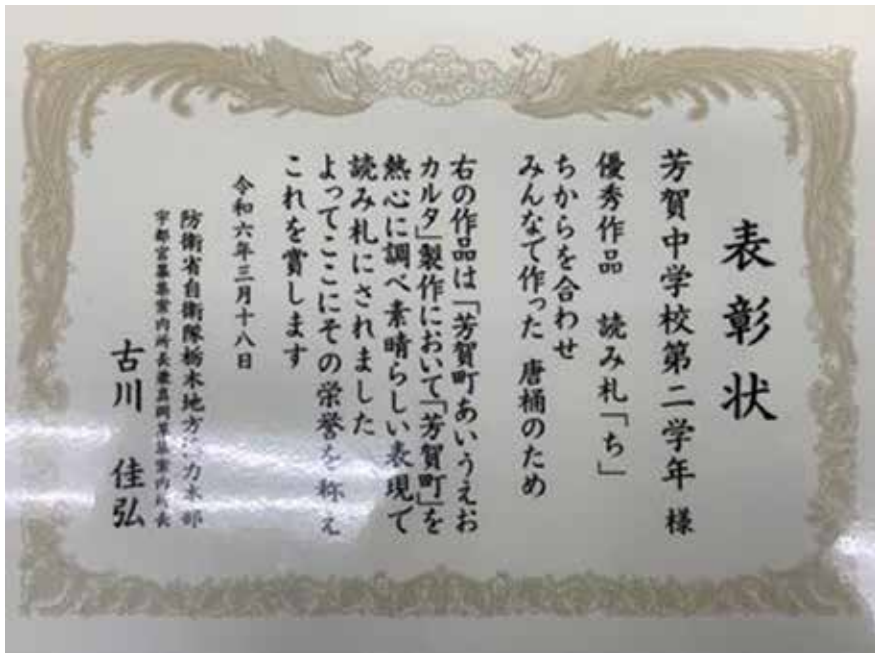 表彰状
芳賀中学校第二学年 様
優秀作品 読み札「ち」
ちからを合わせ
みんなで作った 唐桶のため
右の作品は「芳賀町あいうえお
カルタ」製作において「芳賀町」を
熱心に調べ素晴らしい表現で
読み札にされました
よってここにその栄誉を称え
これを賞します
令和六年三月十八日
防衛省自衛隊栃木地方協力本部
宇都宮募集案内所長兼真岡募集案内所長
古川 佳弘